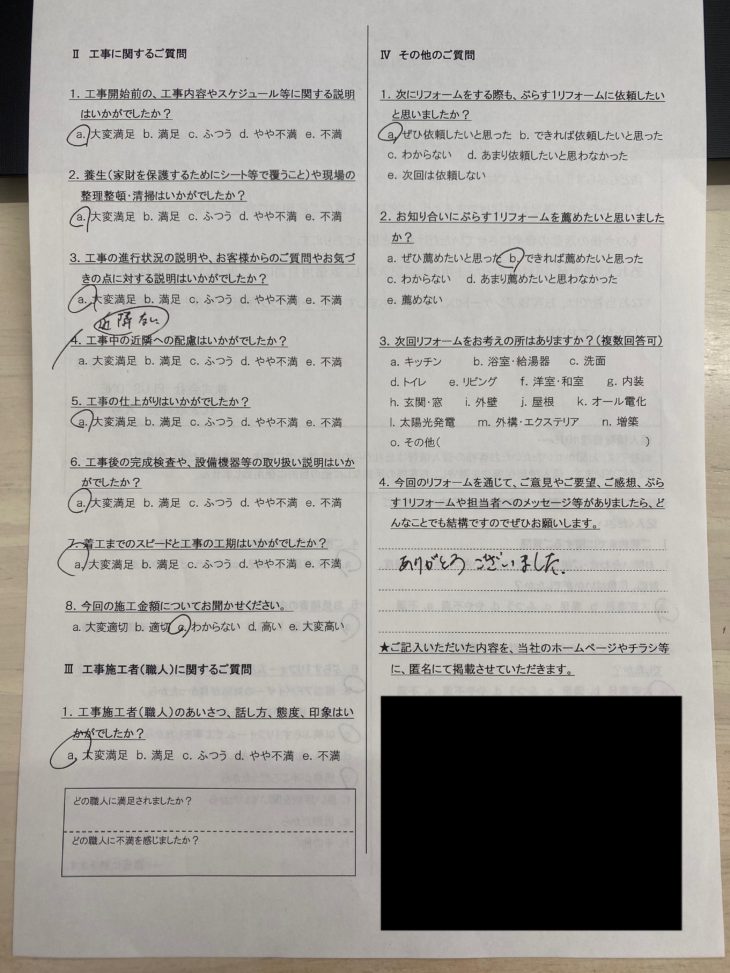 Ⅱ 工事に関するご質問
1. 工事開始前の、工事内容やスケジュール等に関する説明
はいかがでしたか?
a. 大変満足 b. 満足 c. ふつう d. やや不満 e. 不満
2. 養生(家財を保護するためにシート等で覆うこと)や現場の
整理整頓・清掃はいかがでしたか?
a. 大変満足 b. 満足 c. ふつう d. やや不満 e. 不満
3. 工事の進行状況の説明や、お客様からのご質問やお気づ
きの点に対する説明はいかがでしたか?
a. 大変満足 b. 満足 c. ふつう d. やや不満 e. 不満
近隣ない
4. 工事中の近隣への配慮はいかがでしたか?
a. 大変満足 b. 満足 c. ふつう d. やや不満 e. 不満
5. 工事の仕上がりはいかがでしたか?
a. 大変満足 b. 満足 c. ふつう d. やや不満 e. 不満
6. 工事後の完成検査や、設備機器等の取り扱い説明はいか
がでしたか?
a. 大変満足 b. 満足 c. ふつう d. やや不満 e. 不満
7. 着工までのスピードと工事の工期はいかがでしたか?
a. 大変満足 b. 満足 c. ふつう d. やや不満 e. 不満
8. 今回の施工金額についてお聞かせください。
a. 大変適切 b. 適切 c. わからない d. 高い e. 大変高い
Ⅲ 工事施工者(職人)に関するご質問
1. 工事施工者(職人)のあいさつ、話し方、態度、印象はい
かがでしたか?
a. 大変満足 b. 満足 c. ふつう d. やや不満 e. 不満
どの職人に満足されましたか?
どの職人に不満を感じましたか?
Ⅳ その他のご質問
1. 次にリフォームをする際も、ぷらす1リフォームに依頼したい
と思いましたか?
a. ぜひ依頼したいと思った b. できれば依頼したいと思った
c. わからない d. あまり依頼したいと思わなかった
e. 次回は依頼しない
2. お知り合いにぷらす1リフォームを薦めたいと思いました
か?
a. ぜひ薦めたいと思った b. できれば薦めたいと思った
c. わからない d. あまり薦めたいと思わなかった
e. 薦めない
3. 次回リフォームをお考えの所はありますか?(複数回答可)
a. キッチン b. 浴室・給湯器 c. 洗面
d. トイレ e. リビング f. 洋室・和室 g. 内装
h. 玄関・窓 i. 外壁 j. 屋根 k. オール電化
l. 太陽光発電 m. 外構・エクステリア n. 増築
o. その他( )
4. 今回のリフォームを通じて、ご意見やご要望、ご感想、ぷら
す1リフォームや担当者へのメッセージ等がありましたら、ど
んなことでも結構ですのでぜひお願いします。
ありがとうございました。
★ご記入いただいた内容を、当社のホームページやチラシ等
に、匿名にて掲載させていただきます。